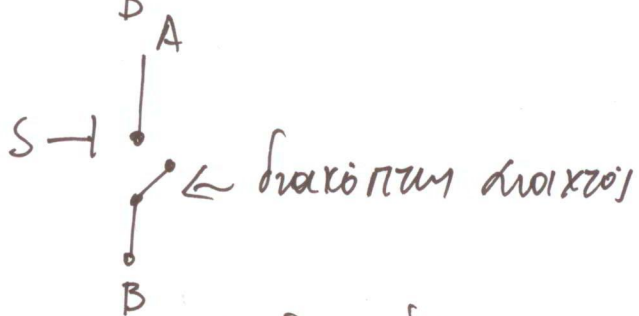 A
S
διακόπτης ανοιχτός
B